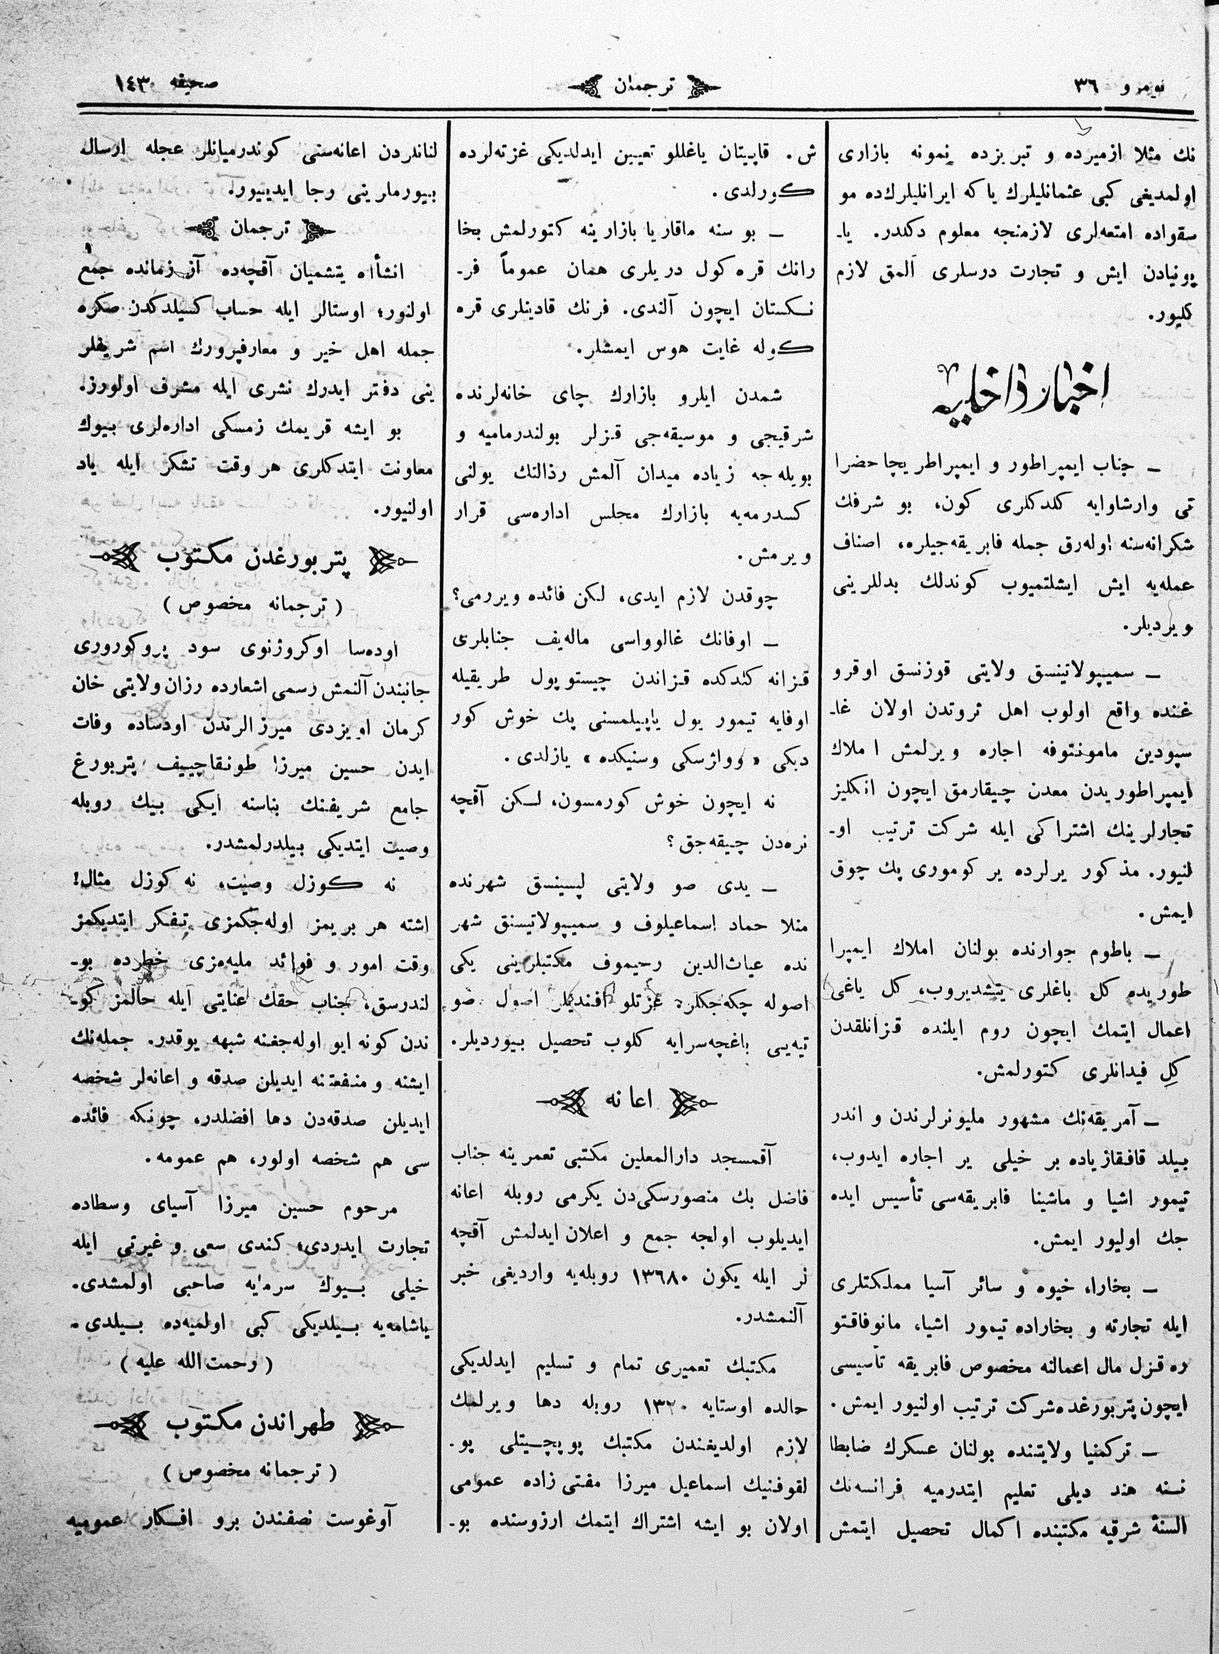 نومرو ٣٦
ترجمان
صحیفه ١٤٣
نك مثلا ازمیرده و تبریزده نمونه بازاری
اولمدیغی كبی عثمانلیلرك یاكه ایرانلیلرك‌ده مو
سقواده امتعه‌لری لازمنجه معلوم دكلدر. یا-
پونیادن ایش و تجارت درسلری آلمق لازم
كلیور.
اخبار داخلیه
— جناب ایمپراطور و ایمپراطریچا حضرا
تی وارشاوایه كلدكلری كون، بو شرفك
شكرانه‌سنه اوله‌رق جمله فابریقه‌جیلره، اصناف
عمله‌یه ایش ایشلتمیوب كوندلك بدللرینی
ویردیلر.
— سمیپولاتینسق ولایتی قوزنسق اوقرو
غنده واقع اولوب اهل ثروتدن اولان غا-
سپودین مامونتوفه اجاره ویرلمش املاك
ایمپراطوریدن معدن چیقارمق ایچون انكلیز
تجارلرینك اشتراكی ایله شركت ترتیب او-
لنیور. مذكور یرلرده یر كوموری پك چوق
ایمش.
— باطوم جوارنده بولنان املاك ایمپرا
طوریده كل باغلری یتشدیروب، كل یاغی
اعمال ایتمك ایچون روم ایلنده قزانلقدن
كل فیدانلری كتورلمش.
— آمریقه‌نك مشهور ملیونرلرندن و اندر
بیلد قافقازیاده بر خیلی یر اجاره ایدوب،
تیمور اشیا و ماشینا فابریقه‌سی تأسیس ایده
جك اولیور ایمش.
— بخارا، خیوه و سائر آسیا مملكتلری
ایله تجارته و بخاراده تیمور اشیا، مانوفاقتو
ره قزل مال اعمالنه مخصوص فابریقه تأسیسی
ایچون پتربورغده شركت ترتیب اولنیور ایمش.
— تركمنیا ولایتنده بولنان عسكرك ضابطا
نسنه هند دیلی تعلیم ایتدرمیه فرانسه‌نك
السنهٔ شرقیه مكتبنده اكمال تحصیل ایتمش
ش. قاپیتان یاغللو تعیین ایدلدیكی غزته‌لرده
كورلدی.
— بو سنه ماقاریا بازارینه كتورلمش بخا
رانك قره كول دریلری همان عموماً فر-
نكستان ایچون آلندی. فرنك قادینلری قره
كوله غایت هوس ایمشلر.
شمدن ایلرو بازارك چای خانه‌لرنده
شرقیجی و موسیقه‌جی قزلر بولندرمامیه و
بویله‌جه زیاده میدان آلمش رذالتك یولنی
كسدرمه‌یه بازارك مجلس اداره‌سی قرار
ویرمش.
چوقدن لازم ایدی، لكن فائده ویررمی؟
— اوفانك غالوواسی ماله‌یف جنابلری
قزانه كلدكده قزاندن چیستوپول طریقیله
اوفایه تیمور یول یاپیلمسنی پك خوش كور
دیكی « وولژسكی وستنیكده » یازلدی.
نه ایچون خوش كورمسون، لكن آقچه
نره‌دن چیقه‌جق؟
— یدی صو ولایتی لپسینسق شهرنده
مثلا حماد اسماعیلوف و سمیپولاتیسنق شهر
نده عیاث‌الدین رحیموف مكتبلرینی یكی
اصوله چكه‌جكلر. عزتلو افندیلر اصول صو
تیه‌یی باغچه‌سرایه كلوب تحصیل بیوردیلر.
اعانه
آقمسجد دارالمعلین مكتبی تعمرینه جناب
فاضل بك منصورسكی‌دن یكرمی روبله اعانه
ایدیلوب اولجه جمع و اعلان ایدلمش آقچه
لر ایله یكون ١٣٦٨٠ روبله‌یه واردیغی خبر
آلنمشدر.
مكتبك تعمیری تمام و تسلیم ایدلدیكی
حالده اوستایه ١٣٢٠ روبله دها ویرلمك
لازم اولدیغندن مكتبك پوپچیتلی پو-
لقوفنیك اسماعیل میرزا مفتی زاده عمومی
اولان بو ایشه اشتراك ایتمك ارزوسنده بو-
لنانلردن اعانه‌سنی كوندرمیانلر عجله ارسال
بیورمارینی رجا ایدییور.
ترجمان
انشأاه یتشمیان آقچه‌ده آز زمانده جمع
اولنور؛ اوستالر ایله حساب كسیلدكدن صكره
جمله اهل خیر و معارفپرورك اسم شریفلر
ینی دفتر ایدرك نشری ایله مشرف اولورز.
بو ایشه قریمك زمسكی اداره‌لری بیوك
معاونت ایتدكلری هر وقت تشكر ایله یاد
اولنیور.
پتربورغدن مكتوب
( ترجمانه مخصوص )
اوده‌سا اوكروژنوی سود پروكوروری
جانبندن آلنمش رسمی اشعارده رزان ولایتی خان
كرمان اویزدی میرزالرندن اودساده وفات
ایدن حسین میرزا طونقاچییف پتربورغ
جامع شریفنك بناسنه ایكی بیك روبله
وصیت ایتدیكی بیلدرلمشدر.
نه كوزل وصیت، نه كوزل مثال!
اشته هر بریمز اوله‌جكمزی تفكر ایتدیكمز
وقت امور و فوائد ملیه‌مزی خطرده بو-
لندرسق، جناب حقك عنایتی ایله حالمز كو-
ندن كونه ایو اوله‌جغنه شبهه یوقدر. جمله‌نك
ایشنه و منفعتنه ایدیلن صدقه و اعانه‌لر شخصه
ایدیلن صدقه‌دن دها افضلدر، چونكه فائده
سی هم شخصه اولور، هم عمومه.
مرحوم حسین میرزا آسیای وسطاده
تجارت ایدردی؛ كندی سعی و غیرتی ایله
خیلی بیوك سرمایه صاحبی اولمشدی.
یاشامه‌یه بیلدیكی كبی اولمیه‌ده بیلدی.
( رحمت‌الله علیه )
طهراندن مكتوب
( ترجمانه مخصوص )
آوغوست نصفندن برو افكار عمومیه